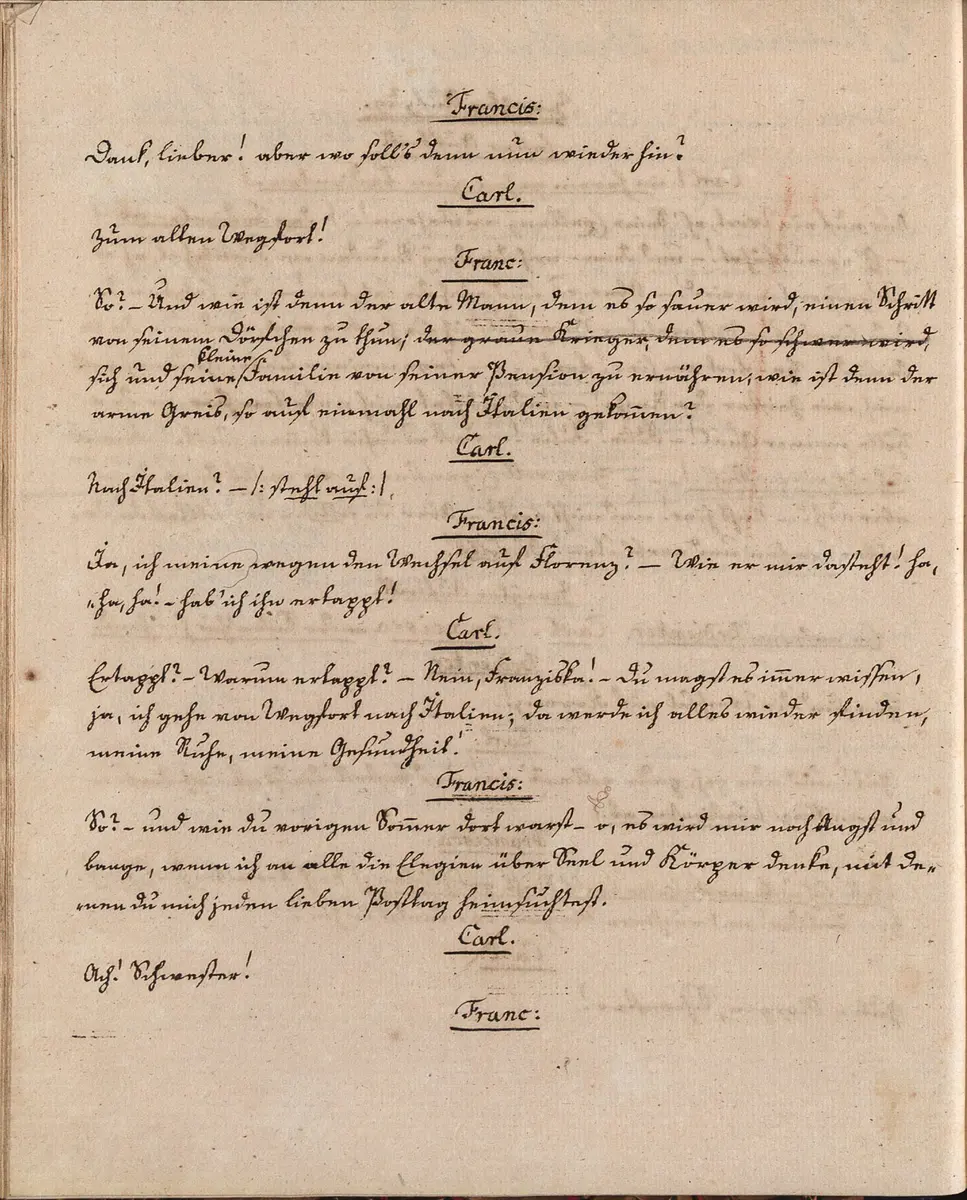 Francis:
Dank, lieber! aber wo soll's denn nun wieder hin?
Carl.
Zum alten Wegfort!
Franc:
So? – Und wie ist denn der alte Mann, dem es so sauer wird, einen Schritt
von seinem Dörfchen zu thun; der graue Krieger, dem es so schwer wird,
kleine
sich und seine Familie von seiner Pension zu ernähren; wie ist denn der
arme Greis, so auf einmahl nach Italien gekommen?
Carl.
Nach Italien? – /: steht auf :/.
Francis:
Ja, ich meine wegen den Wechsel auf Florenz? – Wie er mir dasteht! ha,
ha, ha! – hab' ich ihn ertappt!
Carl.
Ertappt? – Warum ertappt? – Nein, Franziska! – du magst es immer wissen,
ja, ich gehe von Wegfort nach Italien; da werde ich alles wieder finden,
meine Ruhe, meine Gesundheit!
Francis:
So? – und wie du vorigen Sommer dort warst – o, es wird mir noch Angst und
bange, wenn ich an alle die Elegien über Seel und Körper denke, mit de-
nen du mich jeden lieben Posttag heimsuchtest.
Carl.
Ach! Schwester!
Franc: